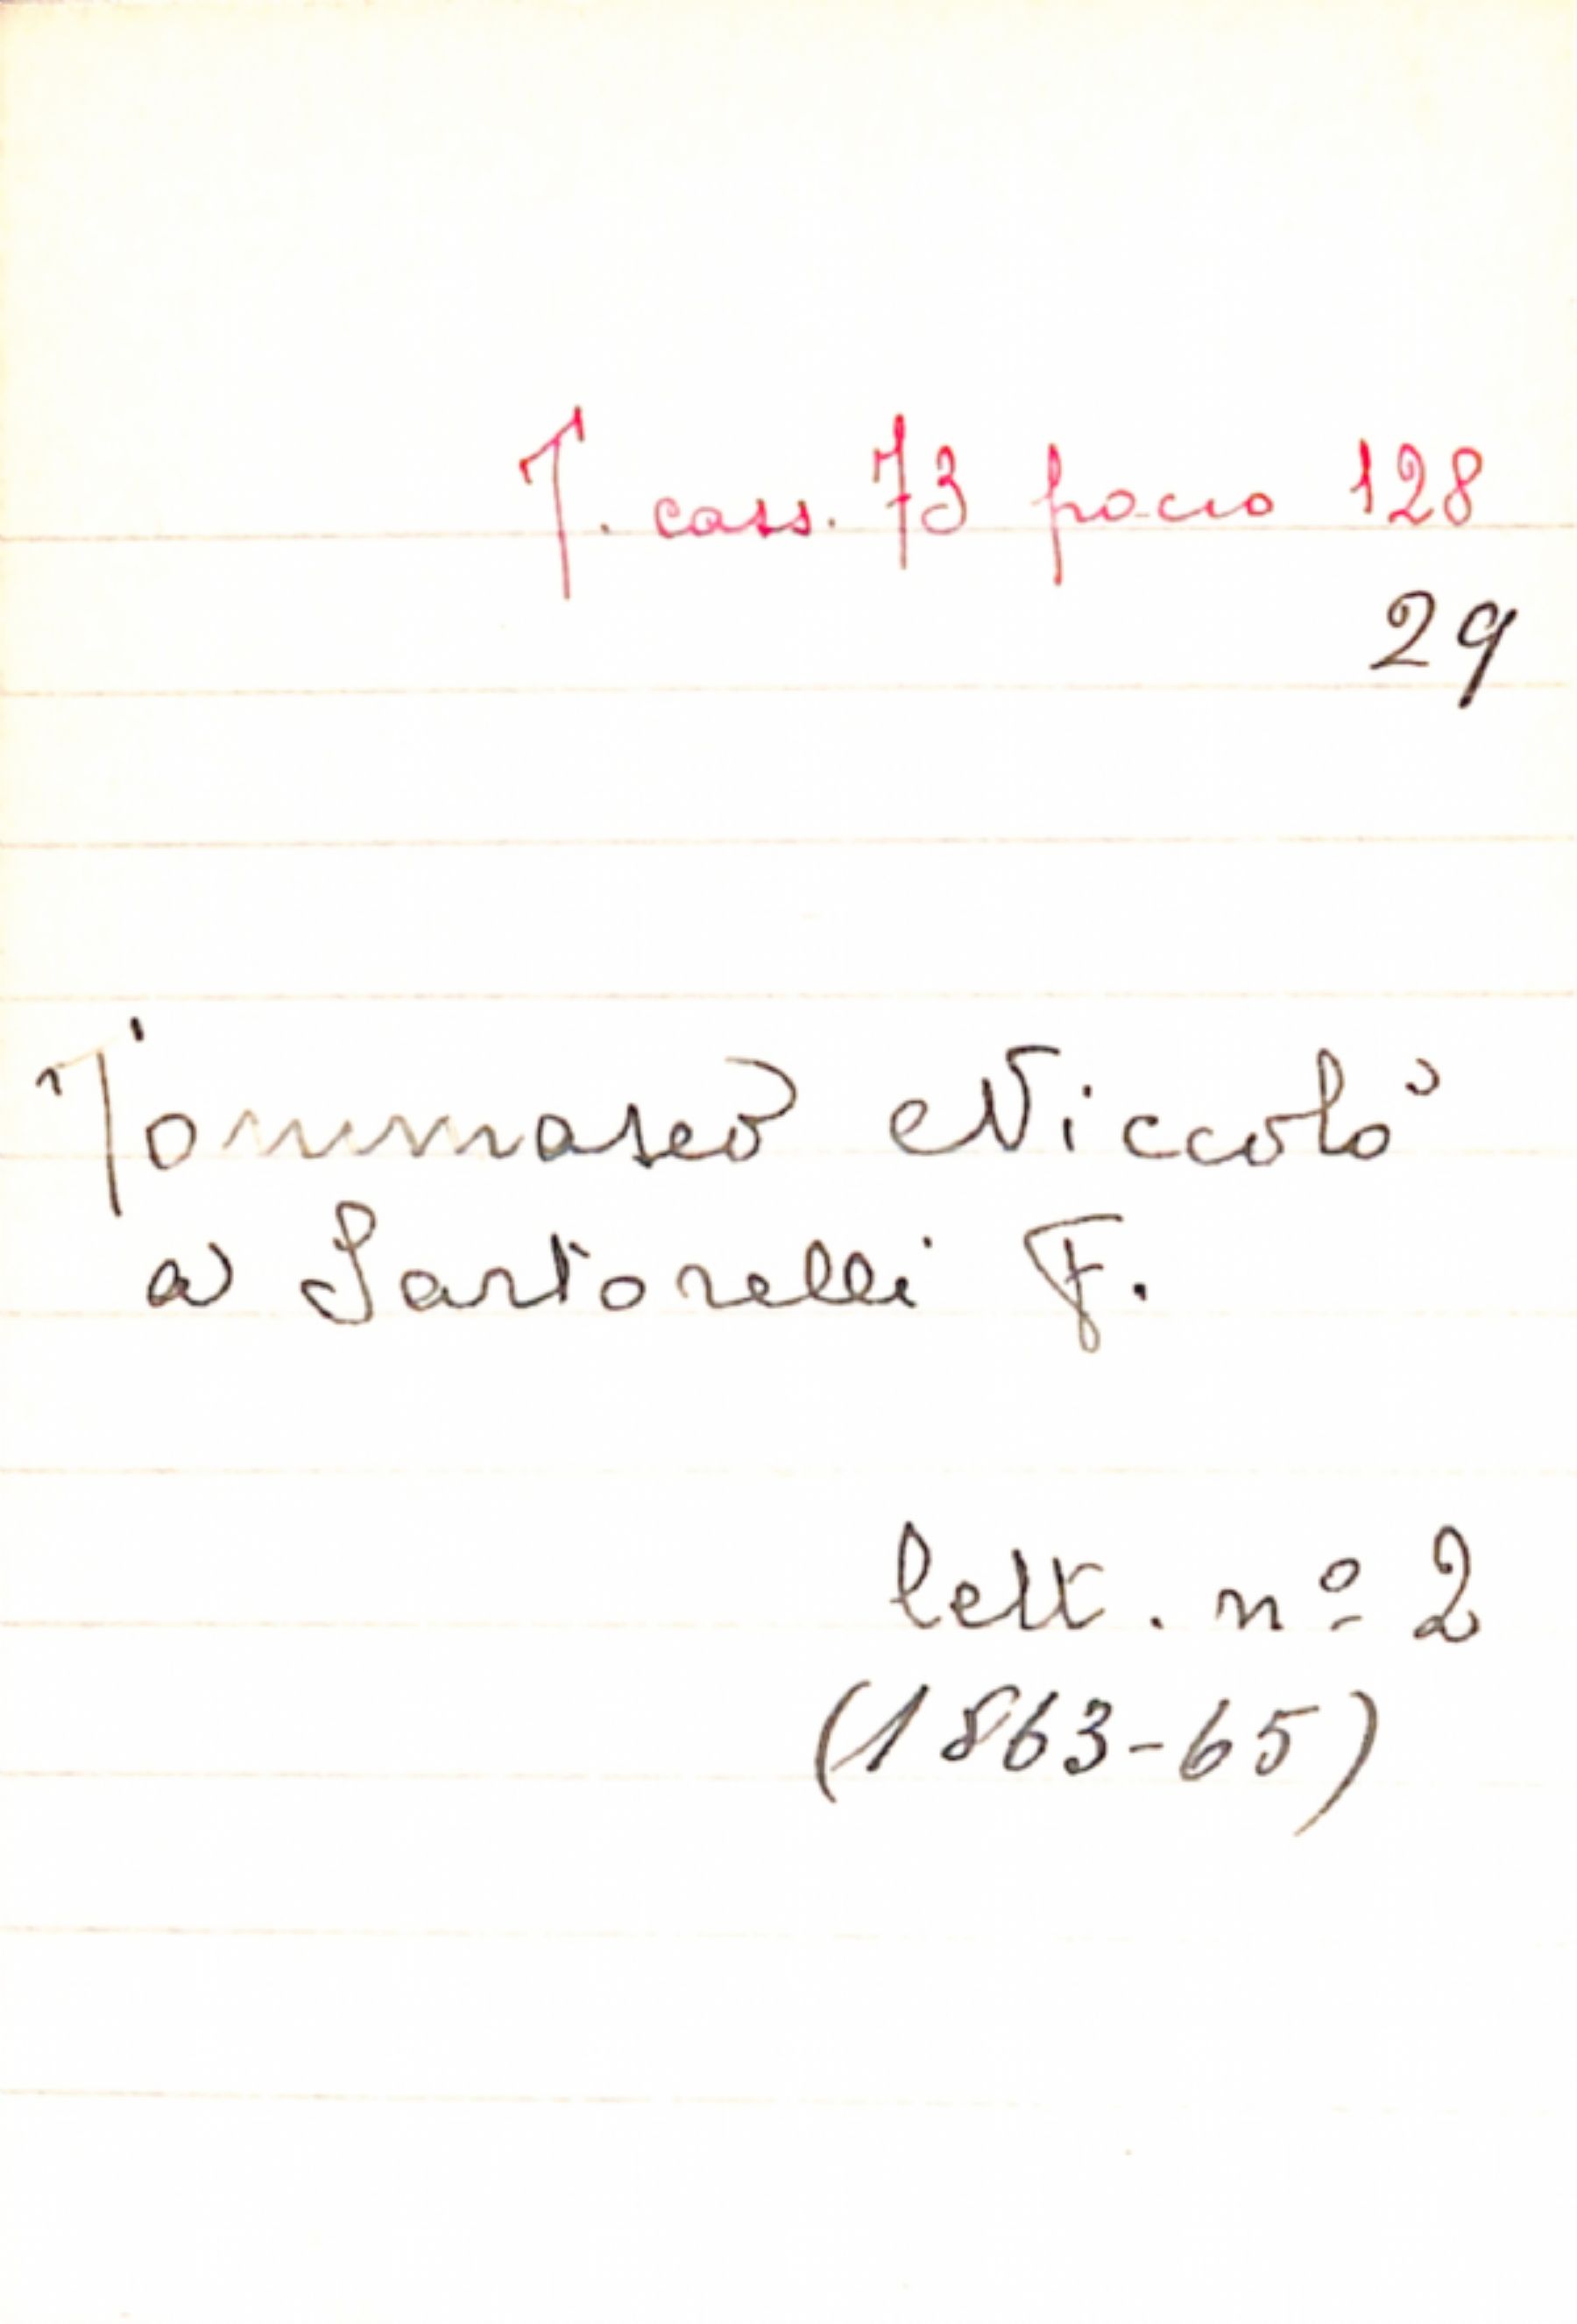 T. cass. 73 pacco 128
29
Tommaseo Niccolò
a Sartorelli F.
lett. nº 2
(1863-65)